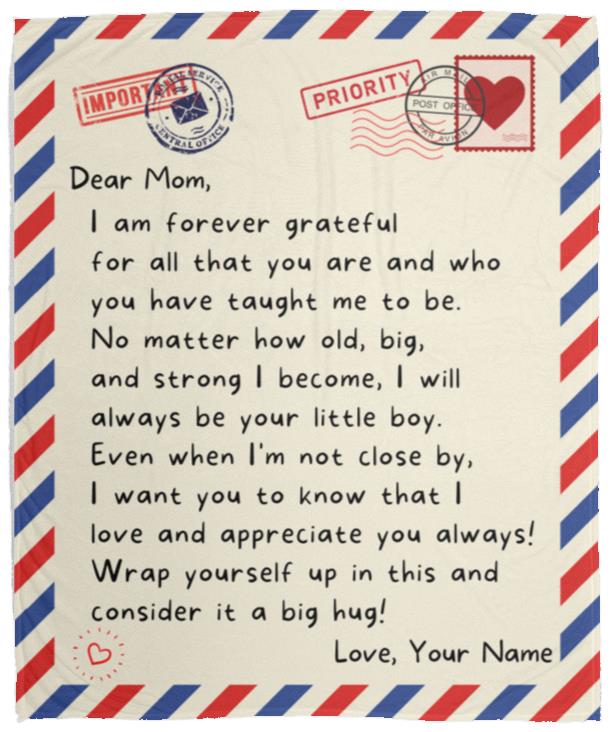 IMPORTANT
POSTAL SERVICE
CENTRAL OFFICE
PRIORITY
AIR MAIL
POST OFFICE
PAR AVION
Dear Mom,
I am forever grateful
for all that you are and who
you have taught me to be.
No matter how old, big,
and strong I become, I will
always be your little boy.
Even when I'm not close by,
I want you to know that I
love and appreciate you always!
Wrap yourself up in this and
consider it a big hug!
Love, Your Name